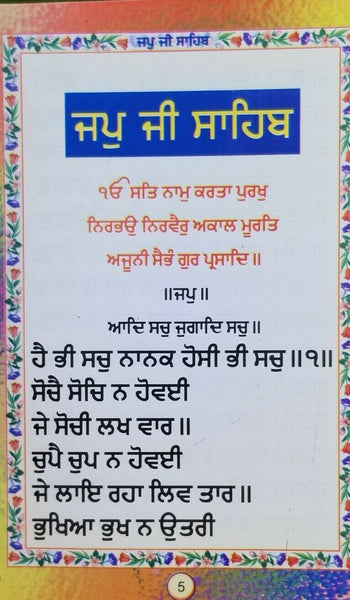 ਜਪੁ ਜੀ ਸਾਹਿਬ
ਜਪੁ ਜੀ ਸਾਹਿਬ
ੴ ਸਤਿ ਨਾਮੁ ਕਰਤਾ ਪੁਰਖੁ
ਨਿਰਭਉ ਨਿਰਵੈਰੁ ਅਕਾਲ ਮੂਰਤਿ
ਅਜੂਨੀ ਸੈਭੰ ਗੁਰ ਪ੍ਰਸਾਦਿ ॥
॥ਜਪੁ॥
ਆਦਿ ਸਚੁ ਜੁਗਾਦਿ ਸਚੁ॥
ਹੈ ਭੀ ਸਚੁ ਨਾਨਕ ਹੋਸੀ ਭੀ ਸਚੁ॥੧॥
ਸੋਚੈ ਸੋਚਿ ਨ ਹੋਵਈ
ਜੇ ਸੋਚੀ ਲਖ ਵਾਰ॥
ਚੁਪੈ ਚੁਪ ਨ ਹੋਵਈ
ਜੇ ਲਾਇ ਰਹਾ ਲਿਵ ਤਾਰ॥
ਭੁਖਿਆ ਭੁਖ ਨ ਉਤਰੀ
5